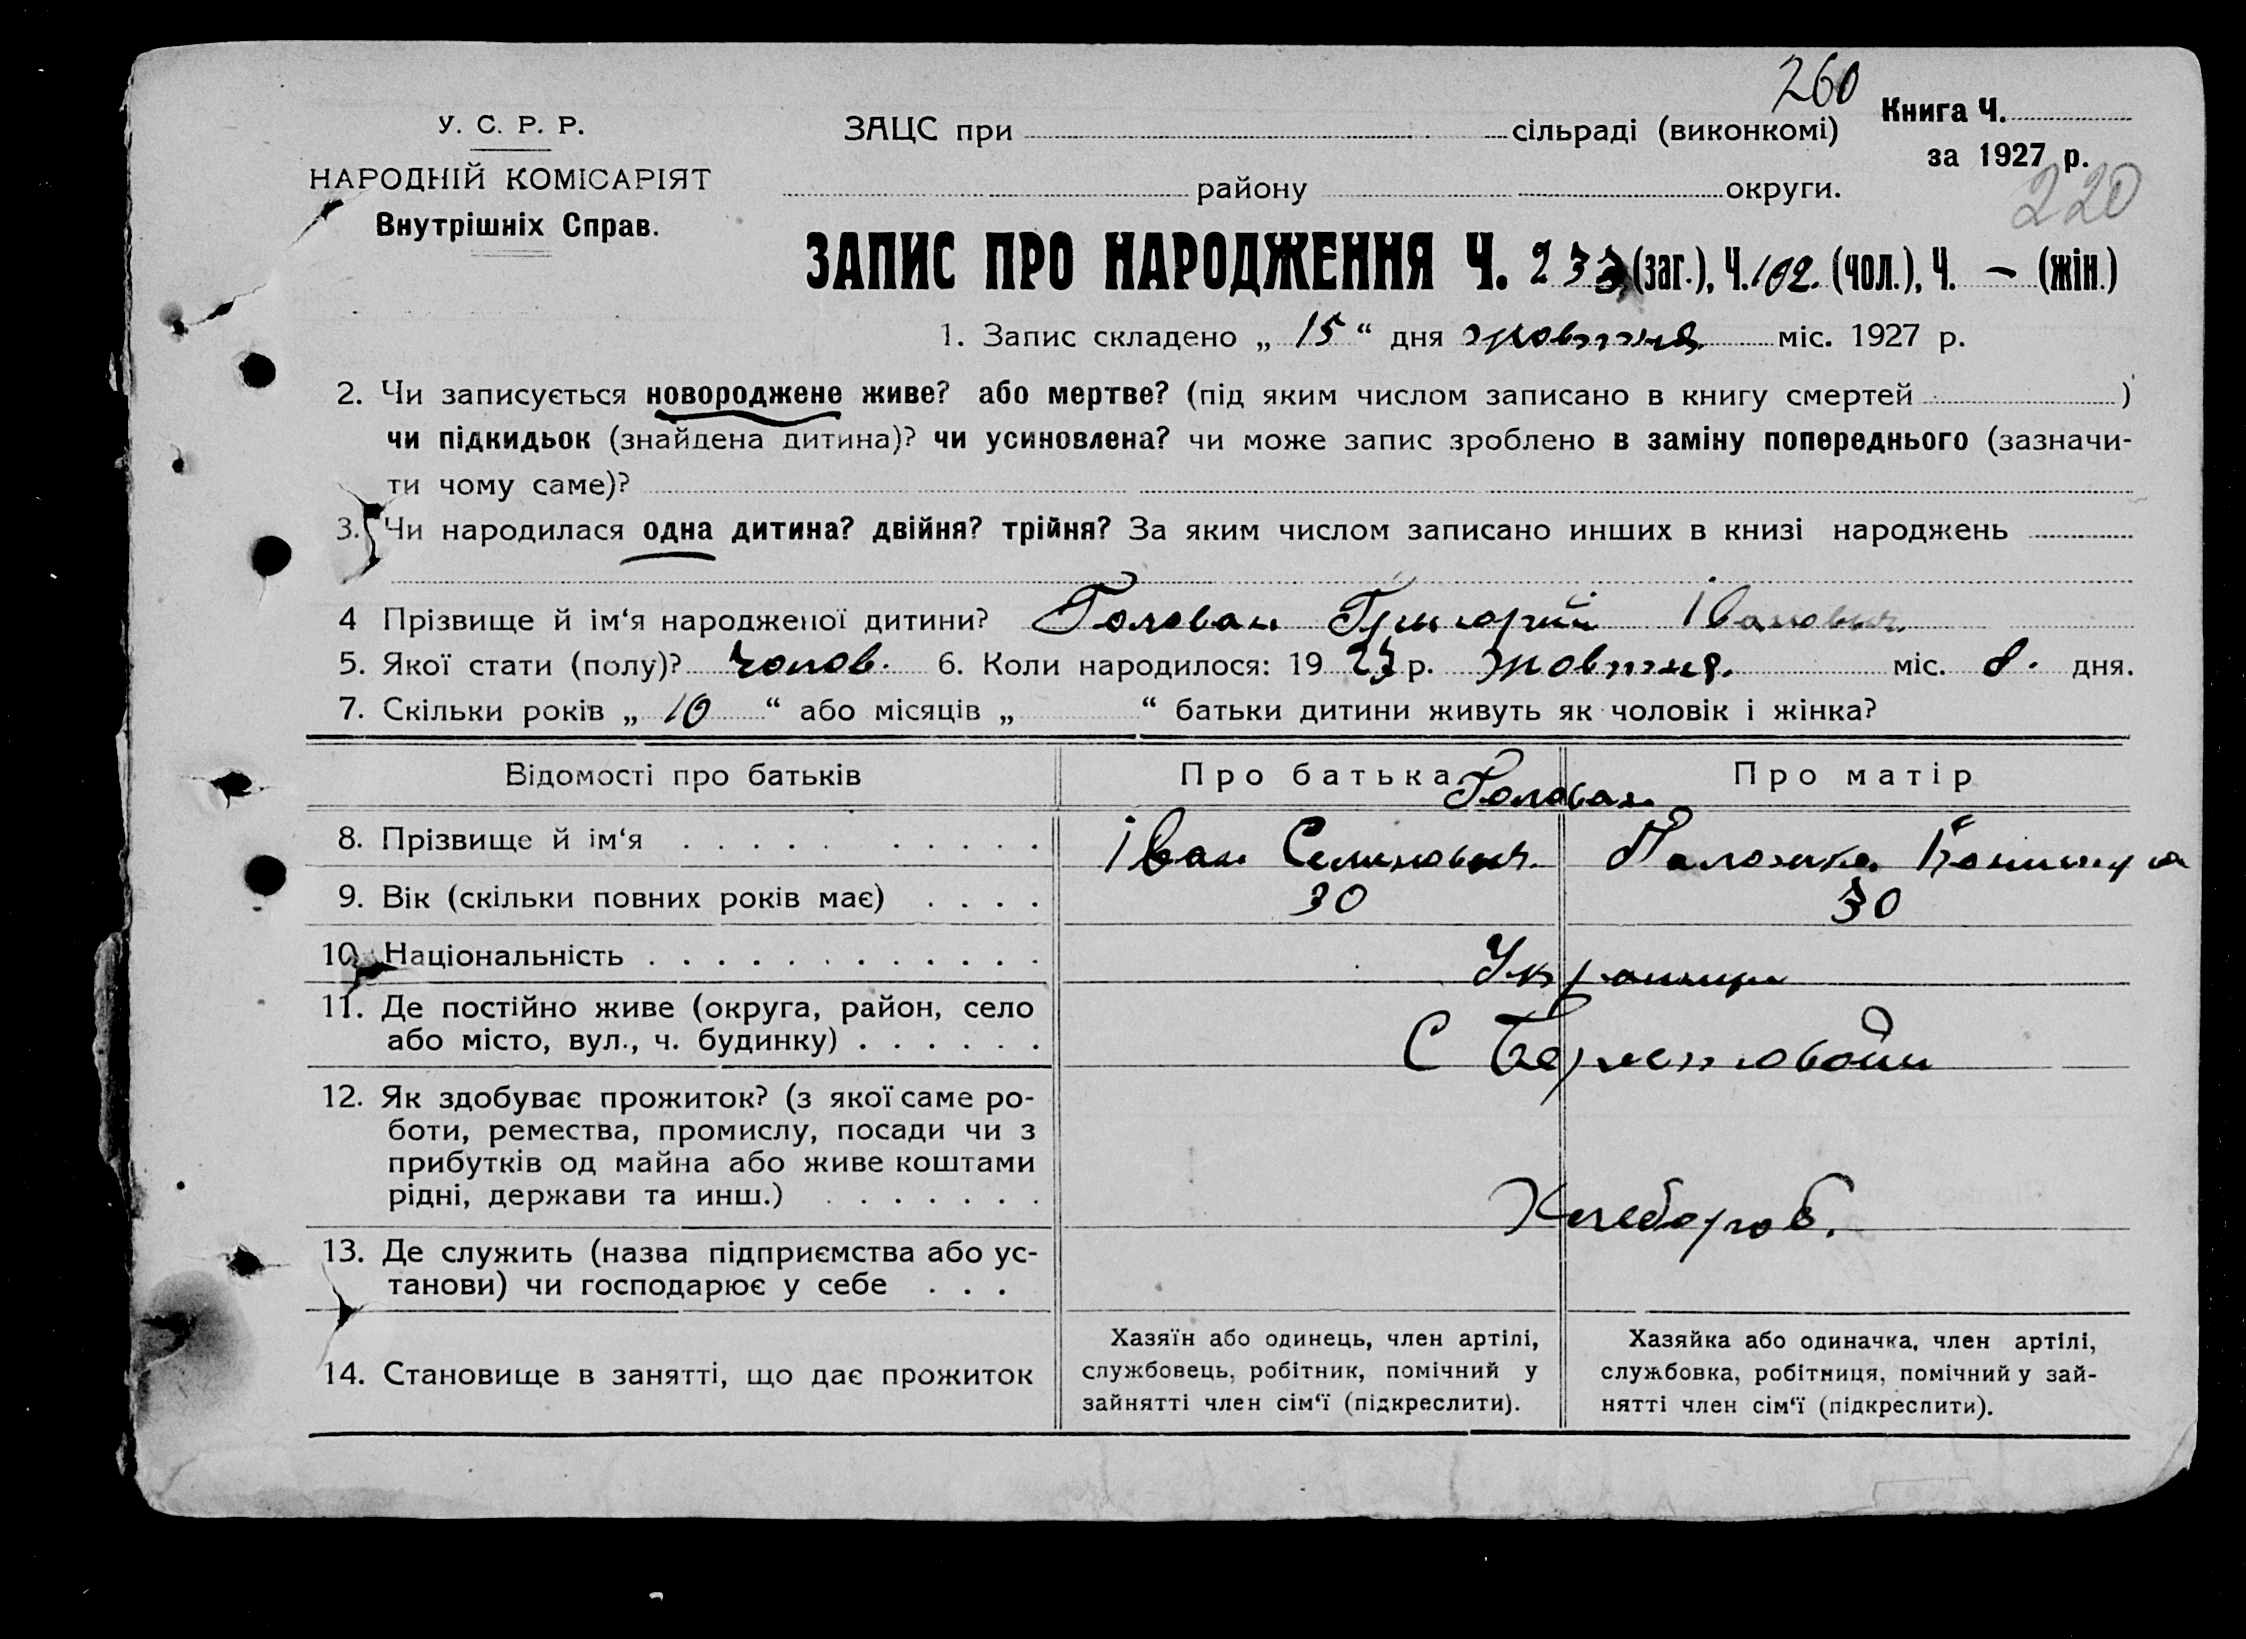 260
Книга Ч.
У. С. Р. Р.
ЗАЦС при сільраді (виконкомі)
за 1927 р.
НАРОДНІЙ КОМІСАРІЯТ
району округи.
220
Внутрішніх Справ.
ЗАПИС ПРО НАРОДЖЕННЯ Ч. 233 (заг.), Ч. 102. (чол.), Ч. – (жін.)
1. Запис складено „ 15 “ дня жовтня міс. 1927 р.
2. Чи записується новороджене живе? або мертве? (під яким числом записано в книгу смертей )
чи підкидьок (знайдена дитина)? чи усиновлена? чи може запис зроблено в заміну попереднього (зазначи-
ти чому саме)?
3. Чи народилася одна дитина? двійня? трійня? За яким числом записано инших в книзі народжень
4 Прізвище й ім‘я народженої дитини? Голован Григорій Іванович
5. Якої стати (полу)? чолов. 6. Коли народилося: 19 27 р. жовтня. міс. 8. дня.
7. Скільки років „ 10 “ або місяців „ “ батьки дитини живуть як чоловік і жінка?
Відомості про батьків Про батька Про матір
Голован
8. Прізвище й ім‘я . . . . . . . . . Іван Семенович.
9. Вік (скільки повних років має) . . . . 30 30
10. Національність . . . . . . . . . . . . . Українци
11. Де постійно живе (округа, район, село
або місто, вул., ч. будинку) . . . . . . С
12. Як здобуває прожиток? (з якої саме ро-
боти, ремества, промислу, посади чи з
прибутків од майна або живе коштами
рідні, держави та инш.) . . . . . . . Хлебороб.
13. Де служить (назва підприємства або ус-
танови) чи господарює у себе . . .
14. Становище в занятті, що дає прожиток
Хазяїн або одинець, член артілі,
службовець, робітник, помічний у
зайнятті член сім‘ї (підкреслити).
Хазяйка або одиначка, член артілі,
службовка, робітниця, помічний у зай-
нятті член сім‘ї (підкреслити).